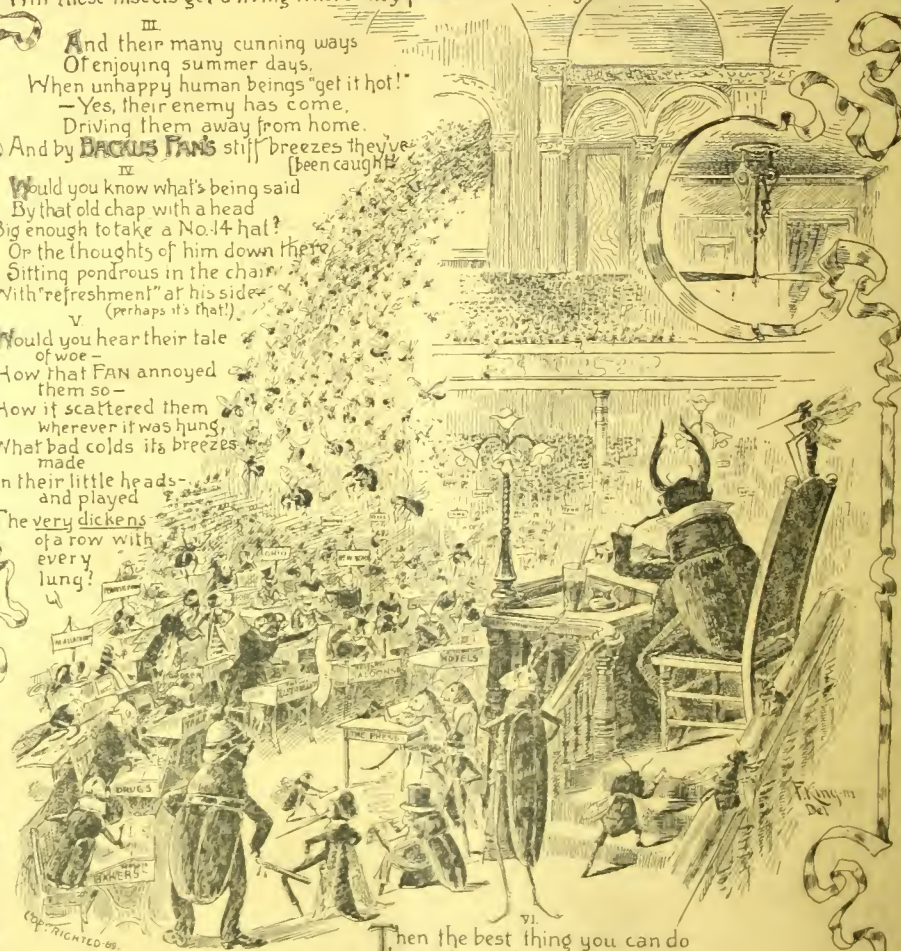 these insects get a living where they
III.
And their many cunning ways
Of enjoying summer days,
When unhappy human beings "get it hot!"
—Yes, their enemy has come,
Driving them away from home.
And by BACKUS FAN'S stiff breezes they've
[been caught!
IV
Would you know what's being said
By that old chap with a head
Big enough to take a No. 14 hat?
Or the thoughts of him down there
Sitting pondrous in the chair
With "refreshment" at his side—
(perhaps it's that!)
V
Would you hear their tale
of woe—
How that FAN annoyed
them so—
How it scattered them
wherever it was hung,
What bad colds its breezes
made
In their little heads—
and played
The very dickens
of a row with
every
lung?
OHIO
HOTELS
THE PRESS
DRUGS
BAKERS
F. King
Del
COPYRIGHTED-89.
VI.
Then the best thing you can do